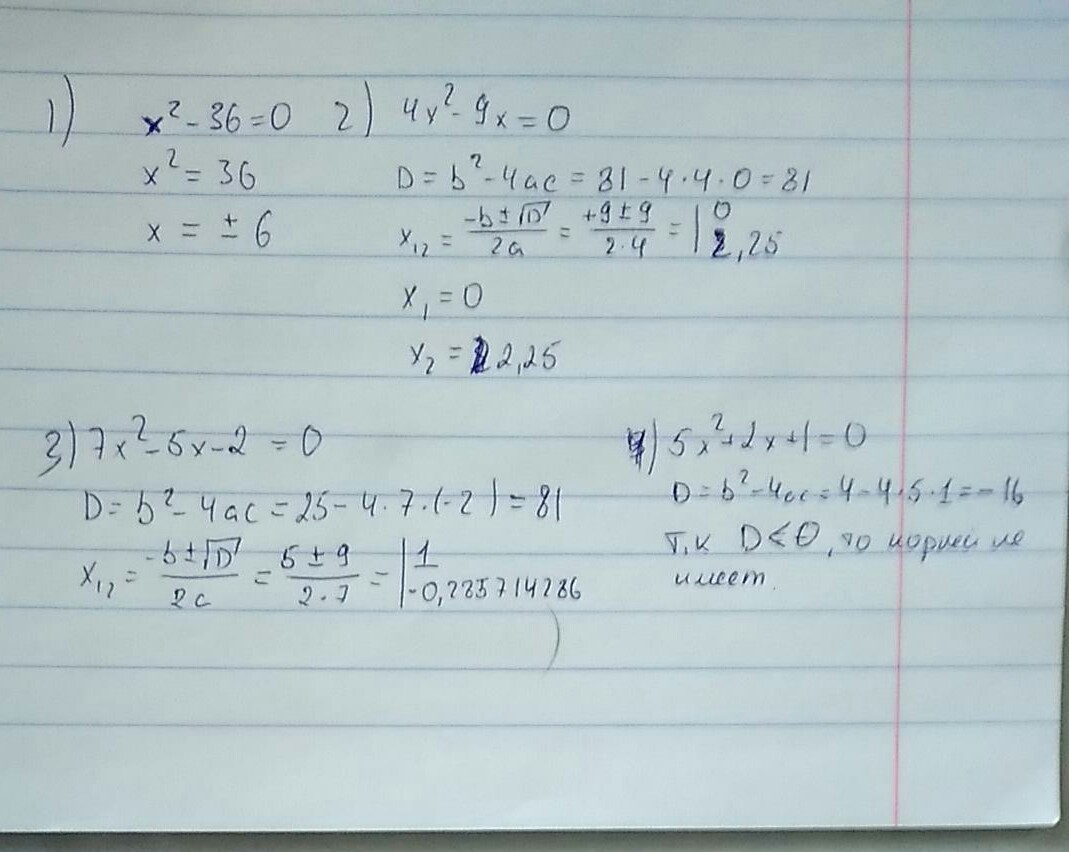 1) x² - 36 = 0
x² = 36
x = ± 6
2) 4x² - 9x = 0
D = b² - 4ac = 81 - 4 · 4 · 0 = 81
x₁₂ = (-b ± √D)/(2a) = (+9 ± 9)/(2 · 4) = | 0
2,25
x₁ = 0
x₂ = 2,25
3) 7x² - 5x - 2 = 0
D = b² - 4ac = 25 - 4 · 7 · (-2) = 81
x₁₂ = (-b ± √D)/(2a) = (5 ± 9)/(2 · 7) = | 1
-0,285714286
4) 5x² + 2x + 1 = 0
D = b² - 4ac = 4 - 4 · 5 · 1 = -16
Т.к D < 0, то корней не
имеет.